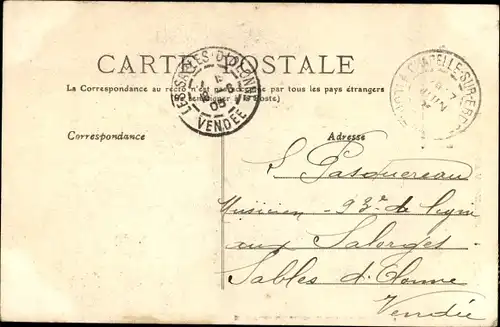 CARTE POSTALE
La Correspondance au recto n'est pas acceptée par tous les pays étrangers
(Se renseigner à la Poste)
LES SABLES-D'OLONNE
VENDÉE
LA CHAPELLE-SUR-ERDRE
Correspondance
Adresse
Pasquereau
Musicien - 93e de ligne
aux Salorges
Sables d'Olonne
Vendée